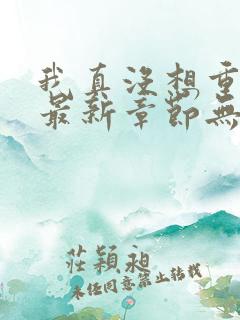 我真沒想重
最新章節無
莊穎昶
未經同意禁止轉載